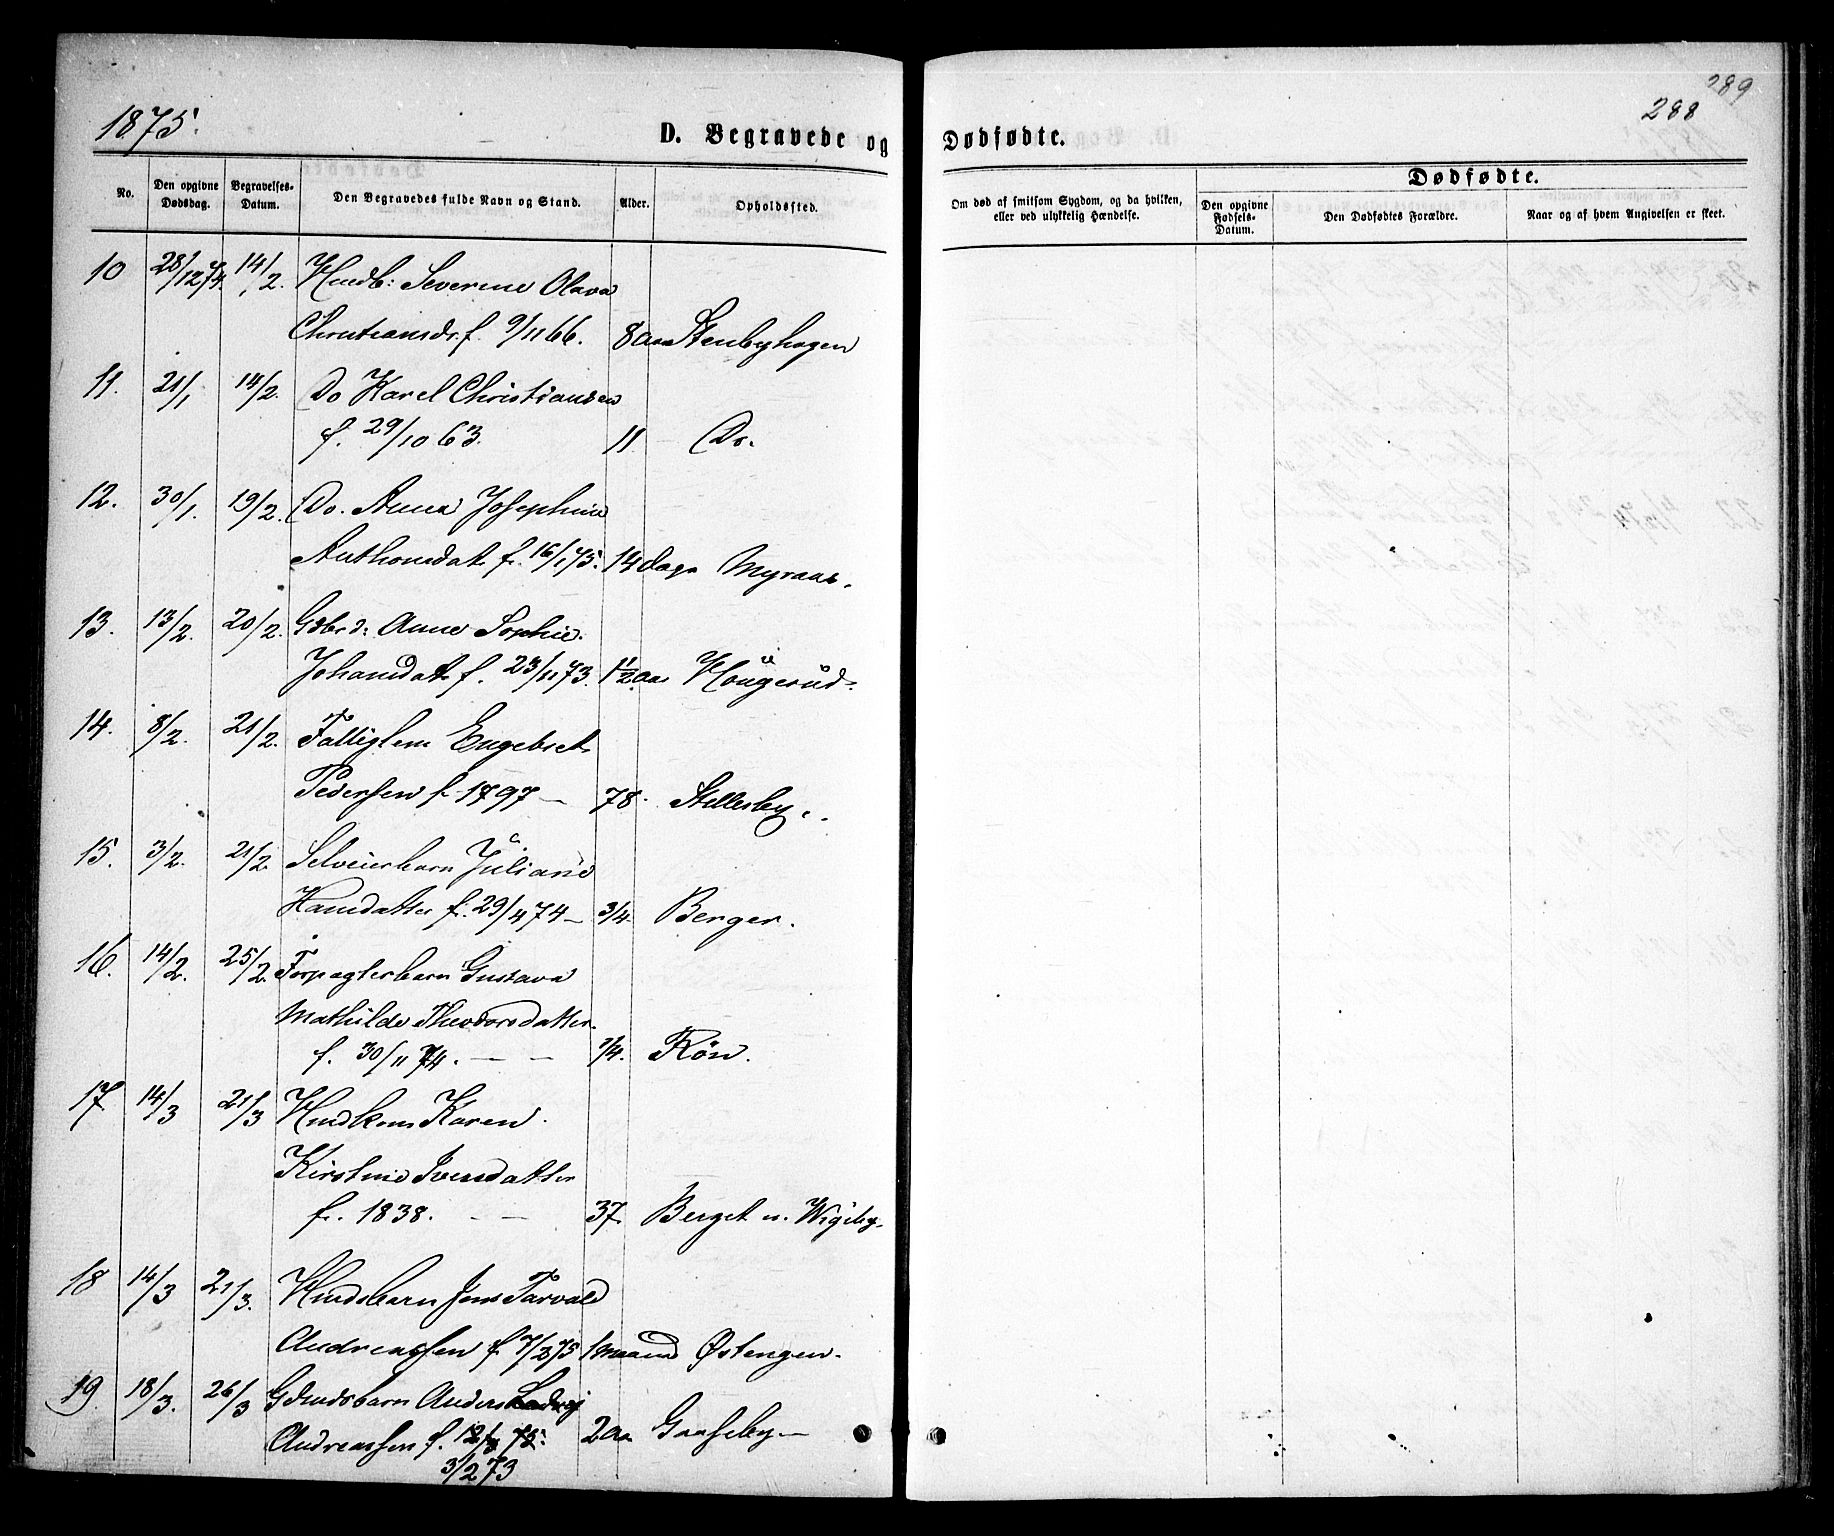 1875.
D. Begravede og
No.
Den opgivne Dødsdag.
Begravelses-Datum.
Den Begravedes fulde Navn og Stand.
Alder.
Opholdssted.
10 28/12 74. 14/2. Husdb: Severine Olava
Christiansdr. f. 9/11 66. 8 aar Stenbyhagen
11. 21/1 14/2. Do Karel Christiansen
f. 29/10 63. 11 Do.
12. 30/1. 19/2. Do. Anna Josephine
Anthonsdat f. 16/1 75. 14 dage Myraas.
13. 13/2. 20/2. Gdbrd: Anne Sophie
Johansdat f. 23/11 73. 1 1/2 aar Höugerud.
14. 8/2. 21/2. Fattiglem Engebret
Pedersen f. 1797 — 78. Stillesby.
15. 3/2. 21/2. Selveierbarn Juliane
Hansdatter f. 29/4 74 — 3/4. Berger.
16. 14/2. 25/2. Forpagterbarn Gustava
Mathilde Theodorsdatter
f. 30/11 74. — — 1/4. Rön.
17 14/3 21/3 Husdkone Karen
Kirstine Iversdatter
f. 1838. — — 37. Berget u. Wigeby.
18 14/3 21/3. Husdsbarn Jens Tarvald
Andreassen f. 7/2 75 1 maaned Østengen.
19. 18/3. 26/3 Gdmdsbarn Anders Ludvig
Andreassen f. 12/3 75. 2 aar Gaaseby —
3/2 73
289
288
Dødfødte.
Om død af smitsom Sygdom, og da hvilken, eller ved ulykkelig Hændelse.
Dødfødte.
Den opgivne Fødsels-Datum.
Den Dødfødtes Forældre.
Naar og af hvem Angivelsen er skeet.